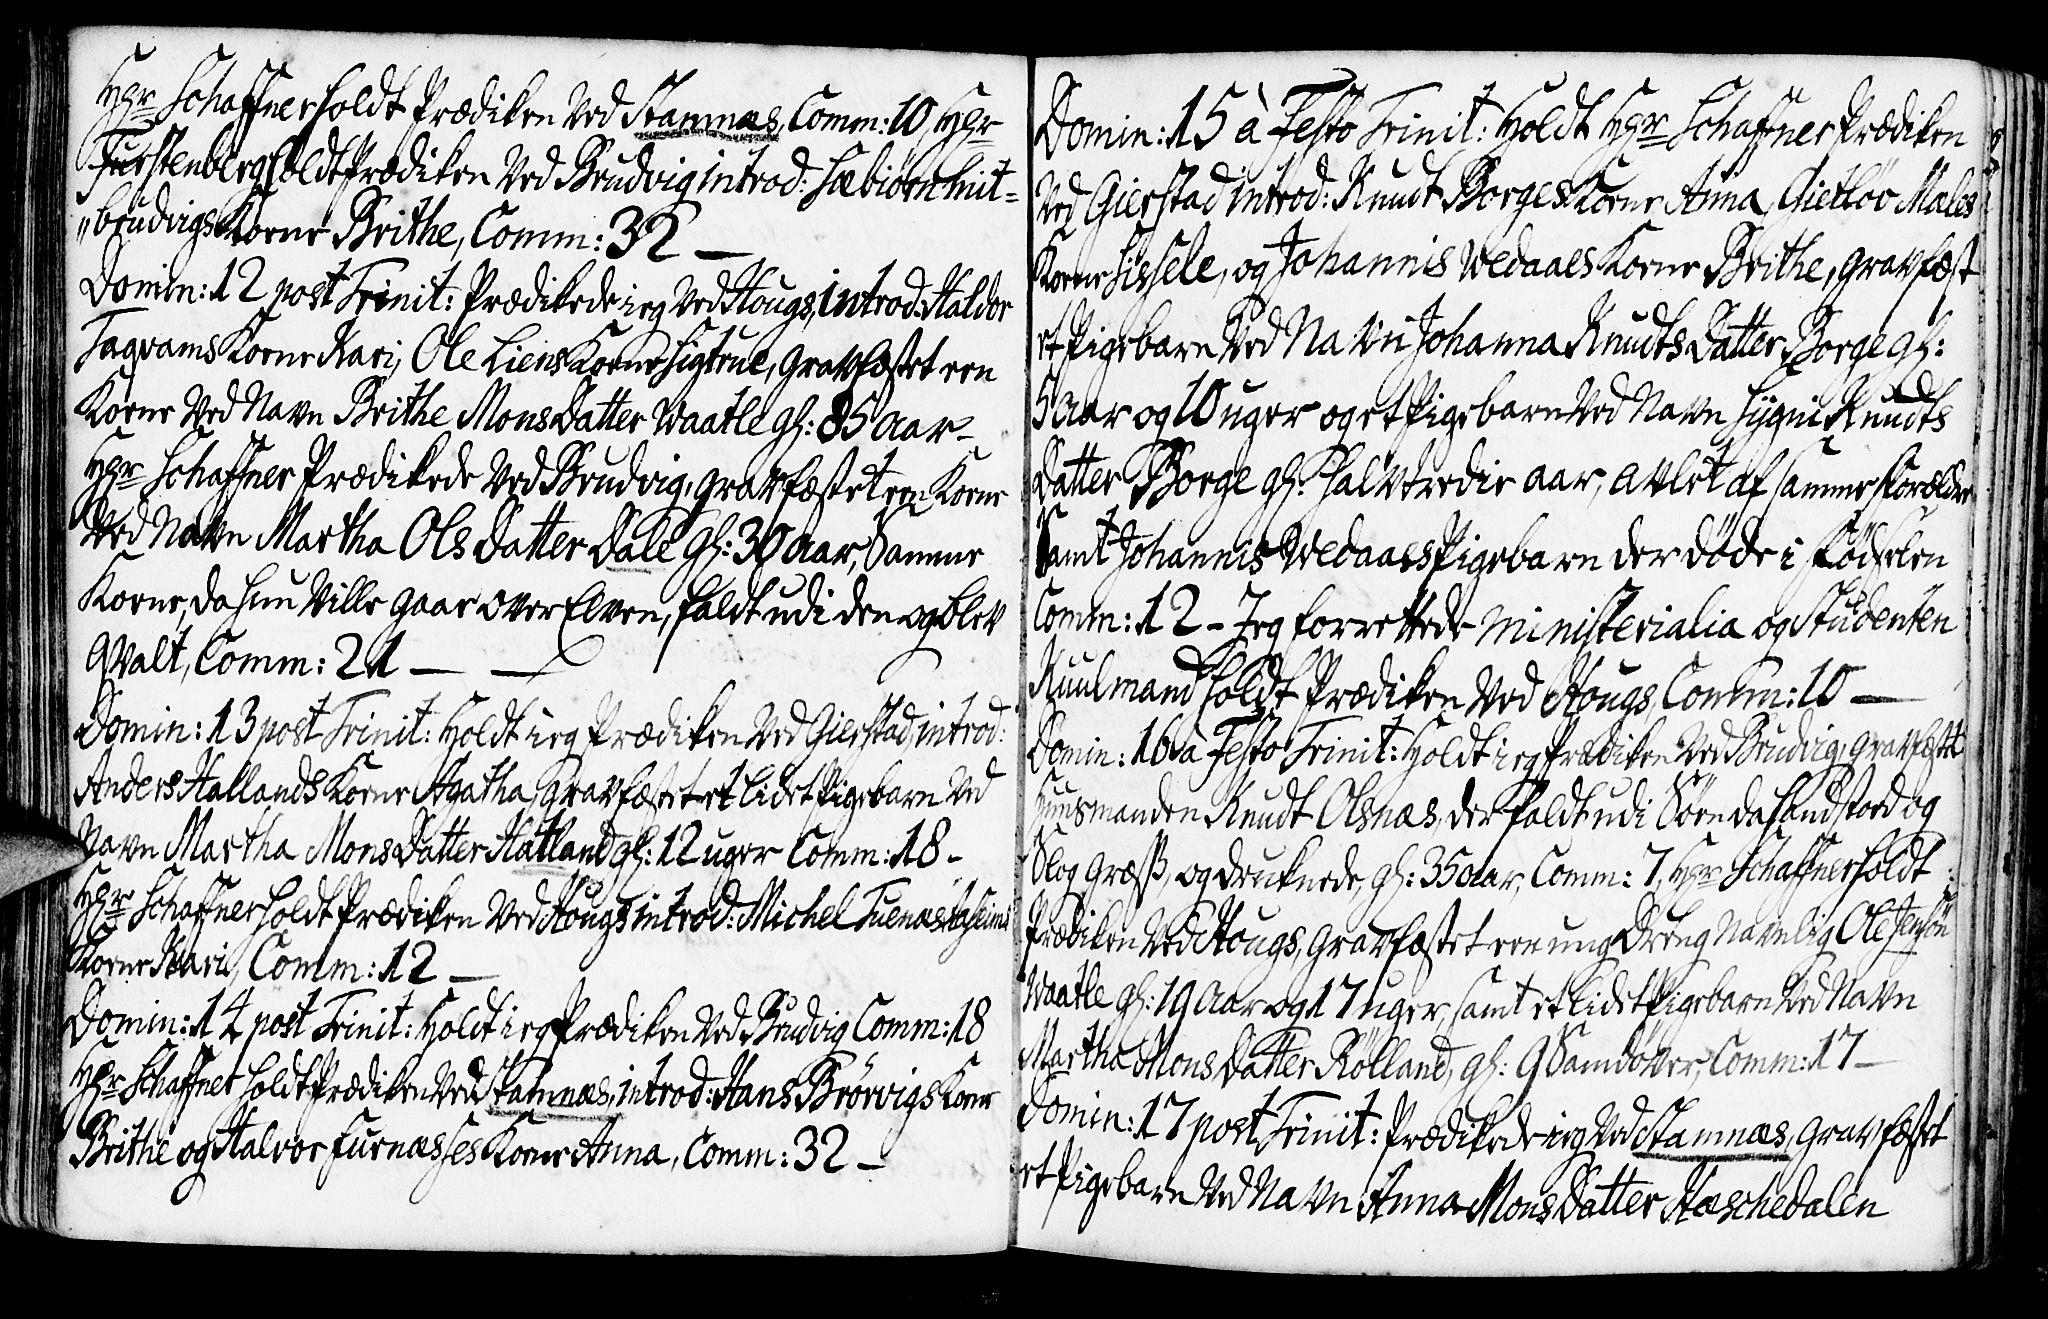 Hgr Schaffner holdt Prædiken ved Stamnæs, Comm: 10, Hgr
Furstenberg holdt Prædiken ved Brudvig introd: Sæbiörn mit=
„brudvigs Kone Brithe, Comm: 32 —
Domin: 12 post Trinit: Prædikede ieg ved Hougs, introd: Haldor
Tagvams Kone Kari, Ole Liens Kone Sigtrue, gravfæstet een
Kone ved Navn Brithe Mons Datter Waatle gl: 85 aar—
Hgr Schaffner Prædikede ved Brudvig, gravfæstet een Kone
ved Navn Martha Ols Datter Dale gl: 30 aar, Samme
Kone, da hun ville gaae over Elven, faldt udi den og blev
qvalt, Comm: 21 — —
Domin: 13 post Trinit: Holdt ieg Prædiken ved Gierstad, introd:
Anders Hallands Kone Agatha, gravfæstet et lidet Pigebarn ved
Navn Martha Mons Datter Hatland gl: 12 uger Comm: 18 -
Hgr Schaffner holdt Prædiken ved Hougs introd: Michel Tuenæs
Kone Kari, Comm: 12 —
Domin: 14 post Trinit: Holdt ieg Prædiken ved Brudvig Comm: 18
Hgr Schaffner holdt Prædiken ved Stamnæs, introd: Hans Brörvigs Kone
Brithe og Halvor Furnæsses Kone Anna, Comm: 32 —
Domin: 15 à Festo Trinit: Holdt Hgr Schaffner Prædiken
ved Gierstad introd: Knudt Borges Kone Anna, Gietlöv Males
Kone Sissele, og Johannis Wedaaes Kone Brithe, gravfæst
et Pigebarn ved Navn Johanna Knudts Datter Borge gl:
5 aar og 10 uger og et Pigebarn ved Navn Sygni Knudts
Datter Borge gl: halvtredie aar, avlet af samme Forældre
Samt Johannis Wedaaes Pigebarn der döde i Födselen
Comm: 12 - Jeg forrettede Ministerialia og Studenten
Ruulmand holdt Prædiken ved Hougs, Comm: 10 —
Domin: 16 à Festo Trinit: Holdt ieg Prædiken ved Brudvig, gravfæstet
Huusmanden Knudt Olsnæs, der faldt udi Söen da hand stoed og
Slog græss, og druknede, gl: 35 aar, Comm: 7, Hgr Schaffner holdt
Prædiken ved Hougs, gravfæstet een ung Dreng navnlig Ole Jensön
Waatle gl: 19 aar og 17 uger, samt et lidet Pigebarn ved Navn
Martha Mons Datter Rölland, gl: 9 Samdöver, Comm: 17 —
Domin: 17 post Trinit: Prædikede ieg ved Stamnæs, gravfæstet
et Pigebarn ved Navn Anna Mons Datter Hæschedalen